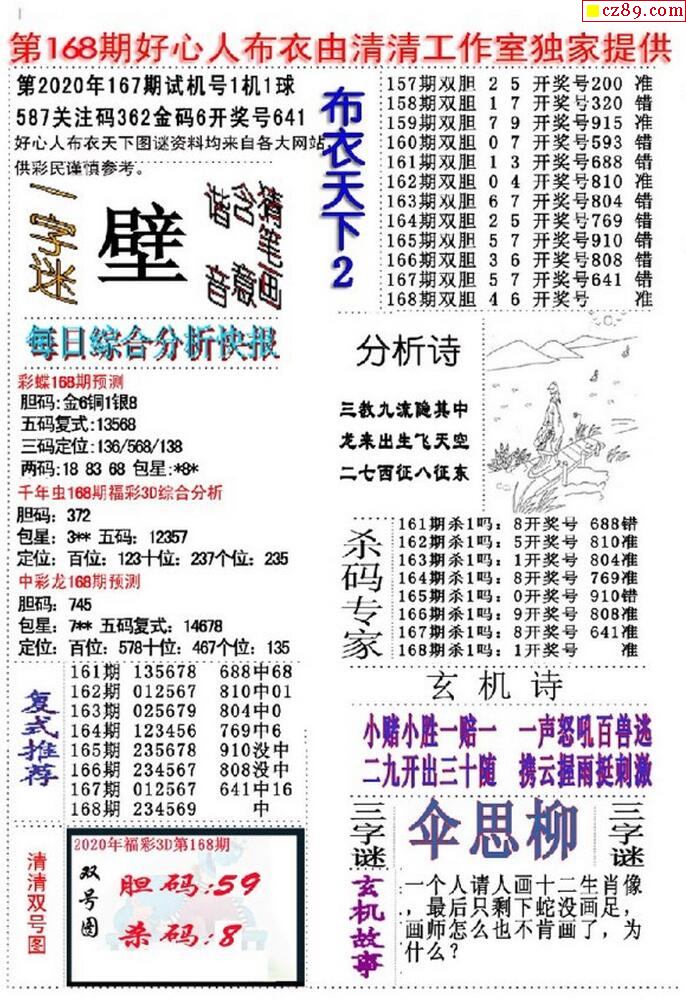 cz89.com
第168期好心人布衣由清清工作室独家提供
第2020年167期试机号1机1球
587关注码362金码6开奖号641
好心人布衣天下图谜资料均来自各大网站,
供彩民谨慎参考。
一字谜
壁
谐含猜
音意笔画
布衣天下2
157期双胆 2 5 开奖号200 准
158期双胆 1 7 开奖号320 错
159期双胆 7 9 开奖号915 准
160期双胆 0 7 开奖号593 错
161期双胆 1 3 开奖号688 错
162期双胆 0 4 开奖号810 准
163期双胆 6 7 开奖号804 错
164期双胆 2 5 开奖号769 错
165期双胆 5 7 开奖号910 错
166期双胆 3 6 开奖号808 错
167期双胆 5 7 开奖号641 错
168期双胆 4 6 开奖号 准
每日综合分析快报
彩蝶168期预测
胆码:金6铜1银8
五码复式:13568
三码定位:136/568/138
两码:18 83 68 包星:*8*
千年虫168期福彩3D综合分析
胆码: 372
包星: 3** 五码: 12357
定位: 百位: 123十位: 237个位: 235
中彩龙168期预测
胆码: 745
包星: 7** 五码复式: 14678
定位: 百位: 578十位: 467个位: 135
分析诗
三教九流隐其中
龙来出生飞天空
二七西征八征东
杀码专家
161期杀1吗: 8开奖号 688错
162期杀1吗: 5开奖号 810准
163期杀1吗: 1开奖号 804准
164期杀1吗: 8开奖号 769准
165期杀1吗: 0开奖号 910错
166期杀1吗: 9开奖号 808准
167期杀1吗: 8开奖号 641准
168期杀1吗: 1开奖号 准
复式推荐
161期 135678 688中68
162期 012567 810中01
163期 025679 804中0
164期 123456 769中6
165期 235678 910没中
166期 234567 808没中
167期 012567 641中16
168期 234569 中
玄机诗
小赌小胜一赔一 一声怒吼百兽逃
二九开出三十随 携云握雨挺刺激
三字谜
伞思柳
三字谜
清清双号图
2020年福彩3D第168期
双号图
胆码:59
杀码:8
玄机故事
一个人请人画十二生肖像
,最后只剩下蛇没画足,
画师怎么也不肯画了,为
什么?